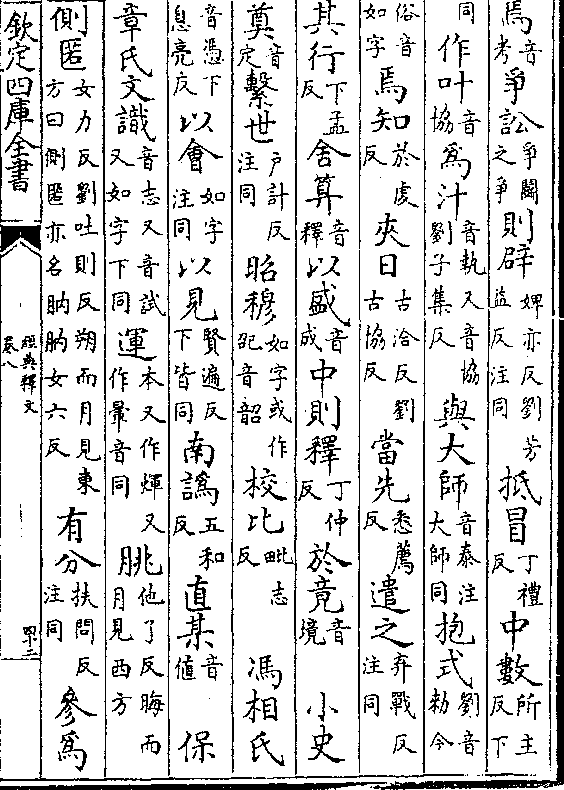 焉音考爭訟爭鬬之爭則辟婢亦反劉芳益反注同抵冒丁禮反中數所主反下
同作叶音協為汁音執又音協劉子集反與大師音泰注大師同抱式劉音勑今
俗音如字焉知於虔反夾日古洽反劉古協反當先悉薦反遣之弃戰反注同
其行下孟反舍算音釋以盛音成中則釋丁仲反於竟音境 小史
奠音定繫世戶計反注同昭穆如字或作巶音韶校比毗志反 馮相氏
音憑下息亮反以會如字注同以見賢遍反下皆同南譌五和反直某音值 保
章氏文識音志又音試又如字下同運本又作煇又作暈音同朓他了反晦而月見西方
側匿女力反劉吐則反朔而月見東方曰側匿亦名朒朒女六反有分扶問反注同參為
欽定四庫全書
經典釋文
卷八